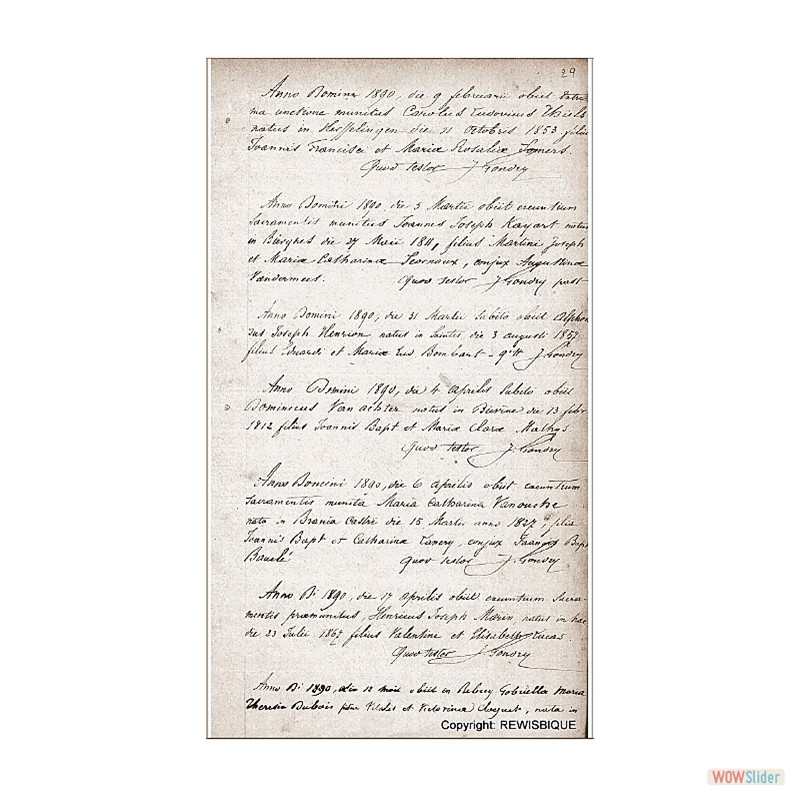 29
Anno Domini 1890, die 9 februarii obiit Extre
ma unctione munitus Carolus Ludovicus Thiels
natus in Hasselingen die 11 octobris 1853 filius
Joannis Francisci et Mariæ Rosaliæ Somers.
Quod testor J Gondry
Anno Domini 1890 die 3 Martii obiit
Sacramentis munitus Joannes Joseph Kayart natus
in Bierghes die 27 Maii 1811, filius Martini Joseph
et Mariæ Catharinæ, conjux Augustinæ
Vandermees. Quod testor J Gondry past
Anno Domini 1890, die 31 Martii Subito obiit Alphon
sus Joseph Henrion natus in Saintes die 3 augusti 1857
filius Eduardi et Mariæ Lud Bombart - J. Gondry
Anno Domini 1890, die 4 aprilis Subito obiit
Dominicus Van achter natus in Bierne die 13 febr
1812 filius Joannis Bapt et Mariæ Claræ Mathys
Quod testor J. Gondry
Anno Domini 1890, die 6 aprilis obiit
Sacramentis munita Maria Catharina Vanouche
nata in Brania Castri die 15 Martii anno 1827, filia
Joannis Bapt et Catharinæ Tancry, conjux François Bapt
Bauclé Quod testor J. Gondry
Anno Di 1890, die 17 aprilis obiit Sacra-
mentis præmunitus, Henricus Joseph Marin, natus in hac
die 23 Julii 1867 filius Valentini et Elisabeth Lucas
Quod testor J Gondry
Anno Di 1890, die 12 maii obiit in Rebecq Gabriella Maria
Theresia Dubois filia Vitalis et Victorina Cloquet, nata in
Copyright: REWISBIQUE
WOWSlider